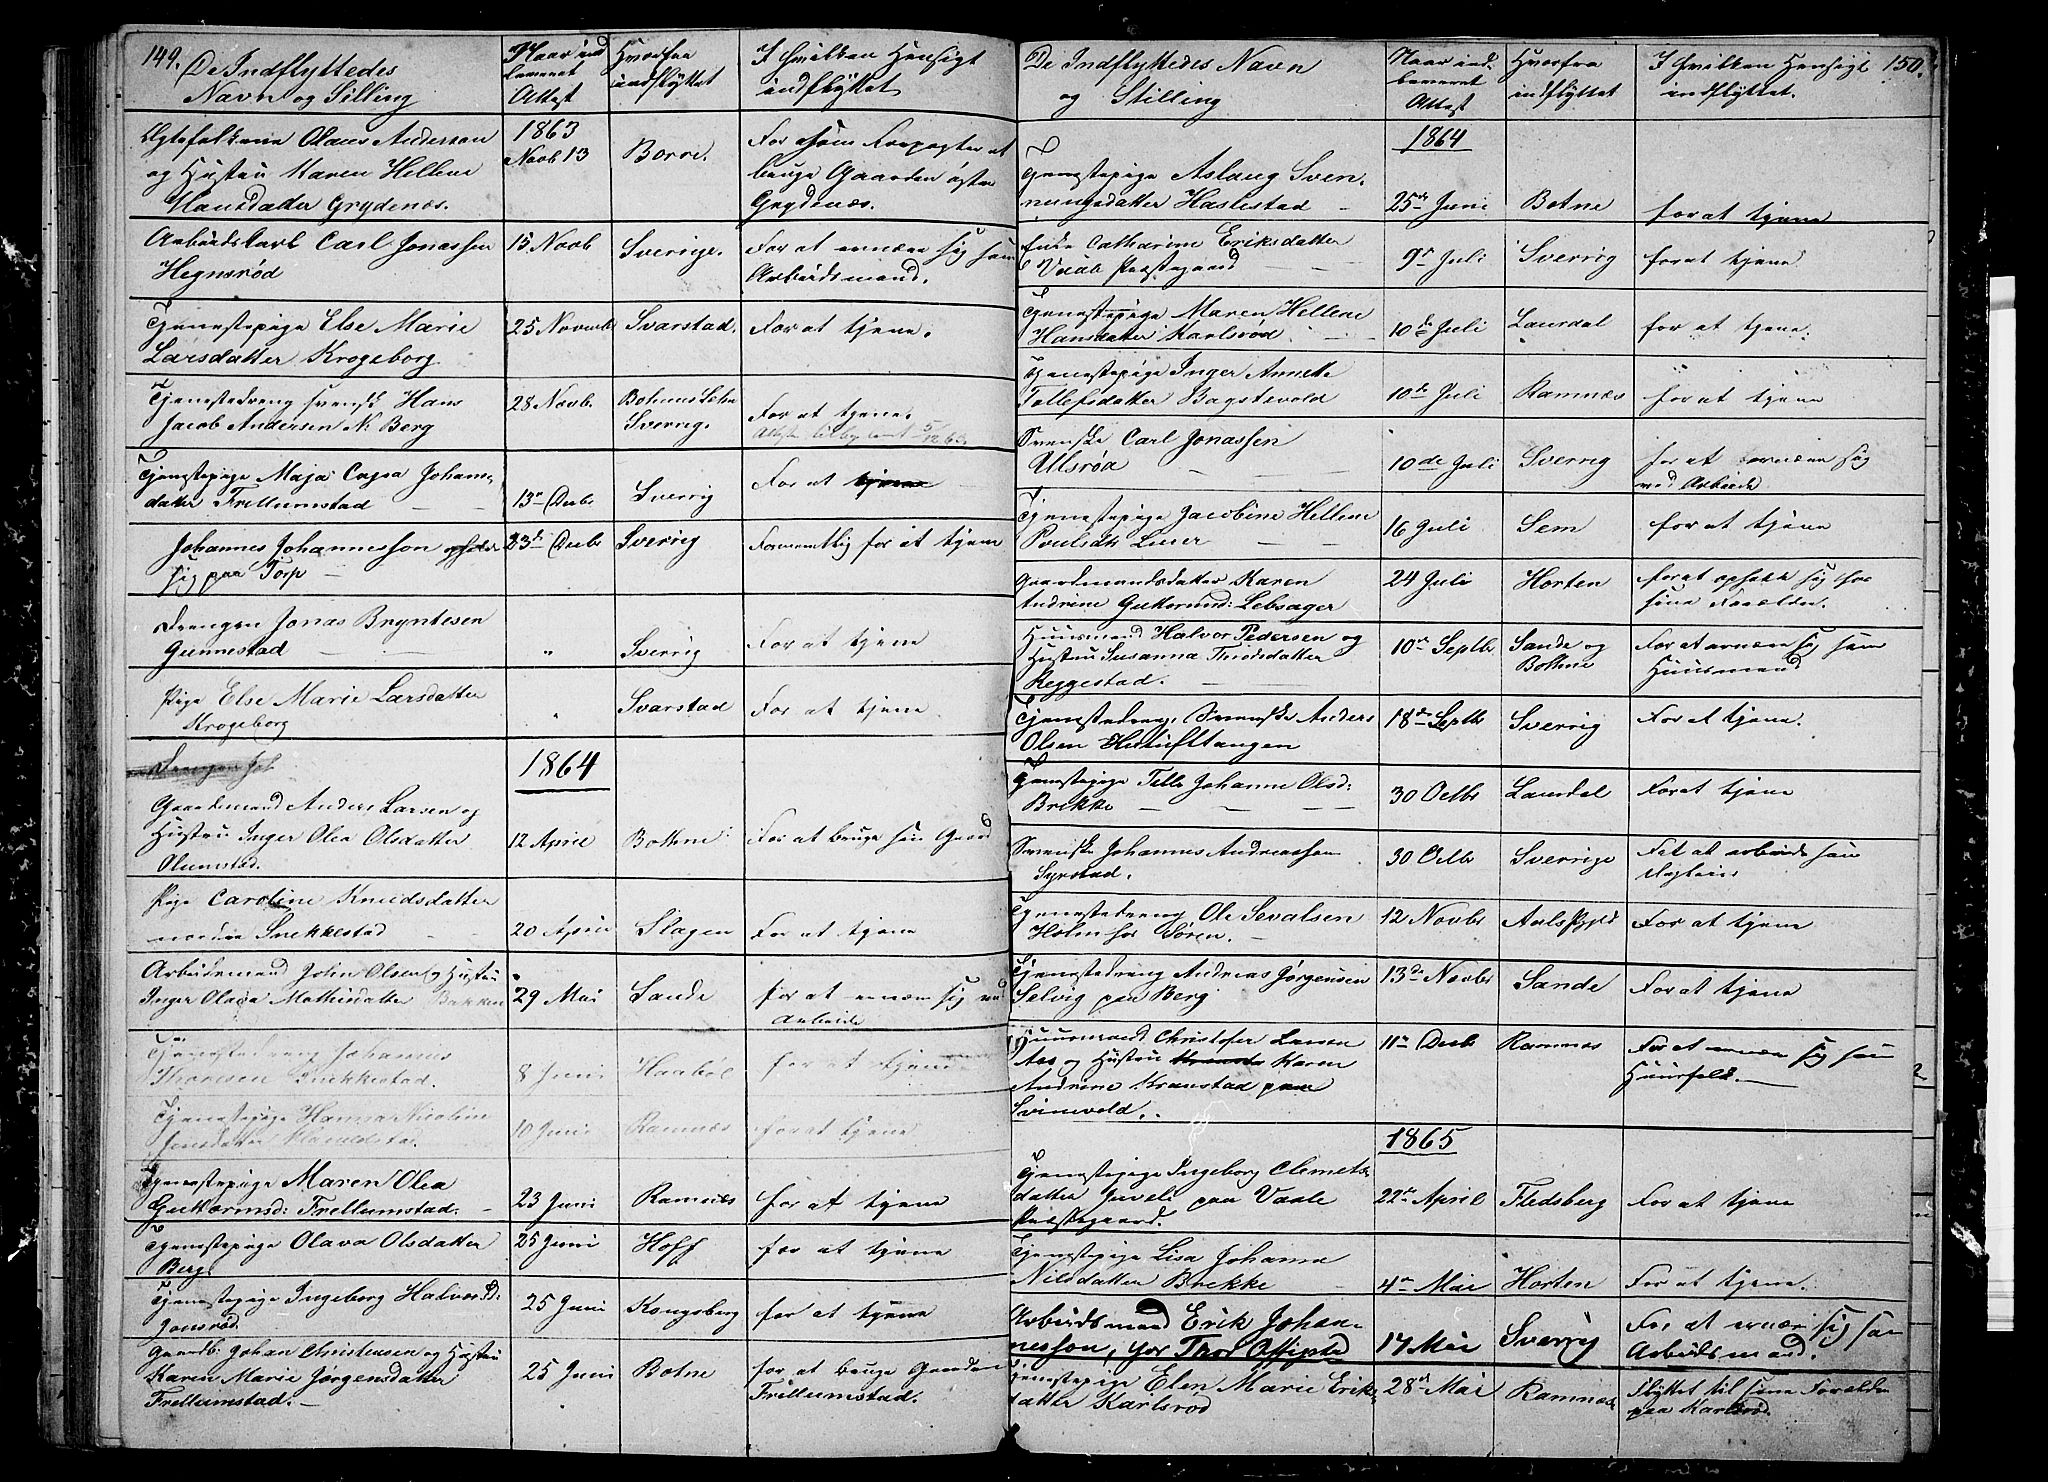 149.
De Indflyttedes
Navn og Stilling
Naar ind
leveret
Attest
Hvorfra
indflyttet
I hvilken Hensigt
indflyttet
Ægtefolkene Olaus Anderssen
og Hustru Karen Hellene
Hansdatter Grydenæs.
1863
Novb 13
Borre.
For som Forpagter at
bruge Gaarden østre
Grydenæs.
Arbeidskarl Carl Jonassen
Hegnsrød
15 Novb
Sverige.
For at ernære sig som
Arbeidsmand.
Tjenestepige Else Marie
Larsdatter Krogeborg
25 Novemb
Svarstad.
For at tjene.
Tjenestedreng svensk Hans
Jacob Andersen N. Berg
28 Novb.
Bohus Lehn
Sverrig.
For at tjene.
Attest tilbagesendt 5/12 63.
Tjenestepige Maja Cajsa Johans-
datter Trellumstad
13de Decbr
Sverrig
For at tjene
Johannes Johannesson opholder
sig paa Torp
23de Decbr
Sverrig
Formentlig for at tjene
Drengen Jonas Bryntesen
Gunnestad
"
Sverrig
For at tjene
Pige Else Marie Larsdatter
Krogeborg
"
Svarstad
For at tjene
Drengen Joh
1864
Gaardmand Anders Larsen og
Hustru Inger Olea Olsdatter
Olumstad.
12 April
Bottne
For at bruge sin Gaard
Pige Caroline Knudsdatter
nordre Snekkestad
20 April
Slagen
For at tjene
Arbeidsmand John Olsen og Hustru
Inger Olava Mathisdatter Bakken
29 Mai
Sande
for at ernære sig ved
Arbeide
Tjenestedreng Johannes
Thoresen Snekkestad.
8 Juni
Haabøl
for at tjene
Tjenestepige Hanna Nicoline
Jensdatter Haraldstad.
10 Juni
Ramnæs
for at tjene
Tjenestepige Maren Olea
Guttormsd: Trellumstad.
23 Juni
Ramnæs
for at tjene
Tjenestepige Olava Olsdatter
Berg.
25 Juni
Hoff
for at tjene
Tjenestepige Ingeborg Halvorsd:
Jonsrød.
25 Juni
Kongsberg
for at tjene
Gaardb: Johan Christensen og Hustru
Karen Marie Jørgensdatter
Trellumstad.
25 Juni
Botne
for at bruge Gaarden
Trellumstad.
De Indflyttedes Navn
og Stilling
Naar ind-
leveret
Attest
Hvorfra
indflyttet
I hvilken Hensigt
indflyttet.
150.
1864
Tjenestepige Aslaug Sven-
nungsdatter Haslestad
25de Juni
Botne
for at tjene
Enke Catharine Eriksdatter
Vaale Præstegaard
9de Juli
Sverrig
for at tjene
Tjenestepige Maren Hellene
Hansdatter Karlsrød
10de Juli
Laurdal
for at tjene.
Tjenestepige Inger Annette
Tollefsdatter Bagstevold
10de Juli
Ramnæs
for at tjene
Svenske Carl Jonassen
Ulsrød
10de Juli
Sverrig
for at ernære sig
ved Arbeide
Tjenestepige Jacobine Hellene
Poulsdtr Luser
16 Juli
Sem
for at tjene
Gaardmandsdatter Karen
Andrine Guttormsd: Lebsager
24 Juli
Horten
for at opholde sig hos
sine Forældre.
Huusmand Halvor Pedersen og
Hustru Susanna Thordsdatter
Reggestad.
10de Septbr
Sande og
Bottne
For at ernære sig som
Huusmand
Tjenestedreng, Svenske Anders
Olsen Hulufttangen
18de Septbr
Sverrig
For at tjene.
Tjenestepige Telle Johanne Olsd:
Brekke
30 Octbr
Laurdal
For at tjene
Svenske Johannes Andreassen
Syrstad.
30 Octbr
Sverrige
For at arbeide som
Tjenestedreng Ole Sevalsen
Holm hos Søren.
12 Novbr
Aalskjold
For at tjene
Tjenestedreng Andreas Jørgensen
Selvig paa Berg
13de Novbr
Sande
For at tjene
Huusmand Christofer Larsen
Aas og Hustru Karen
Andrine Kranstad paa
Svinevold.
11de Decb
Ramnæs
For at ernære sig som
Huusfolk.
1865
Tjenestepige Ingeborg Clemets-
datter Juveli paa Vaale
Præstegaard.
22de April
Flesberg
For at tjene
Tjenestepige Lisa Johanna
Nilsdatter Brekke
4de Mai
Horten
For at tjene.
Arbeidsmand Erik Johan-
nesson, for Thor Offigsted
17 Mai
Sverrig
For at ernære sig som
Arbeidsmand.
Tjenestepige Elen Marie Eriks-
datter Karlsrød
28de Mai
Ramnæs
Flyttet til sine Forældre
paa Karlsrød.